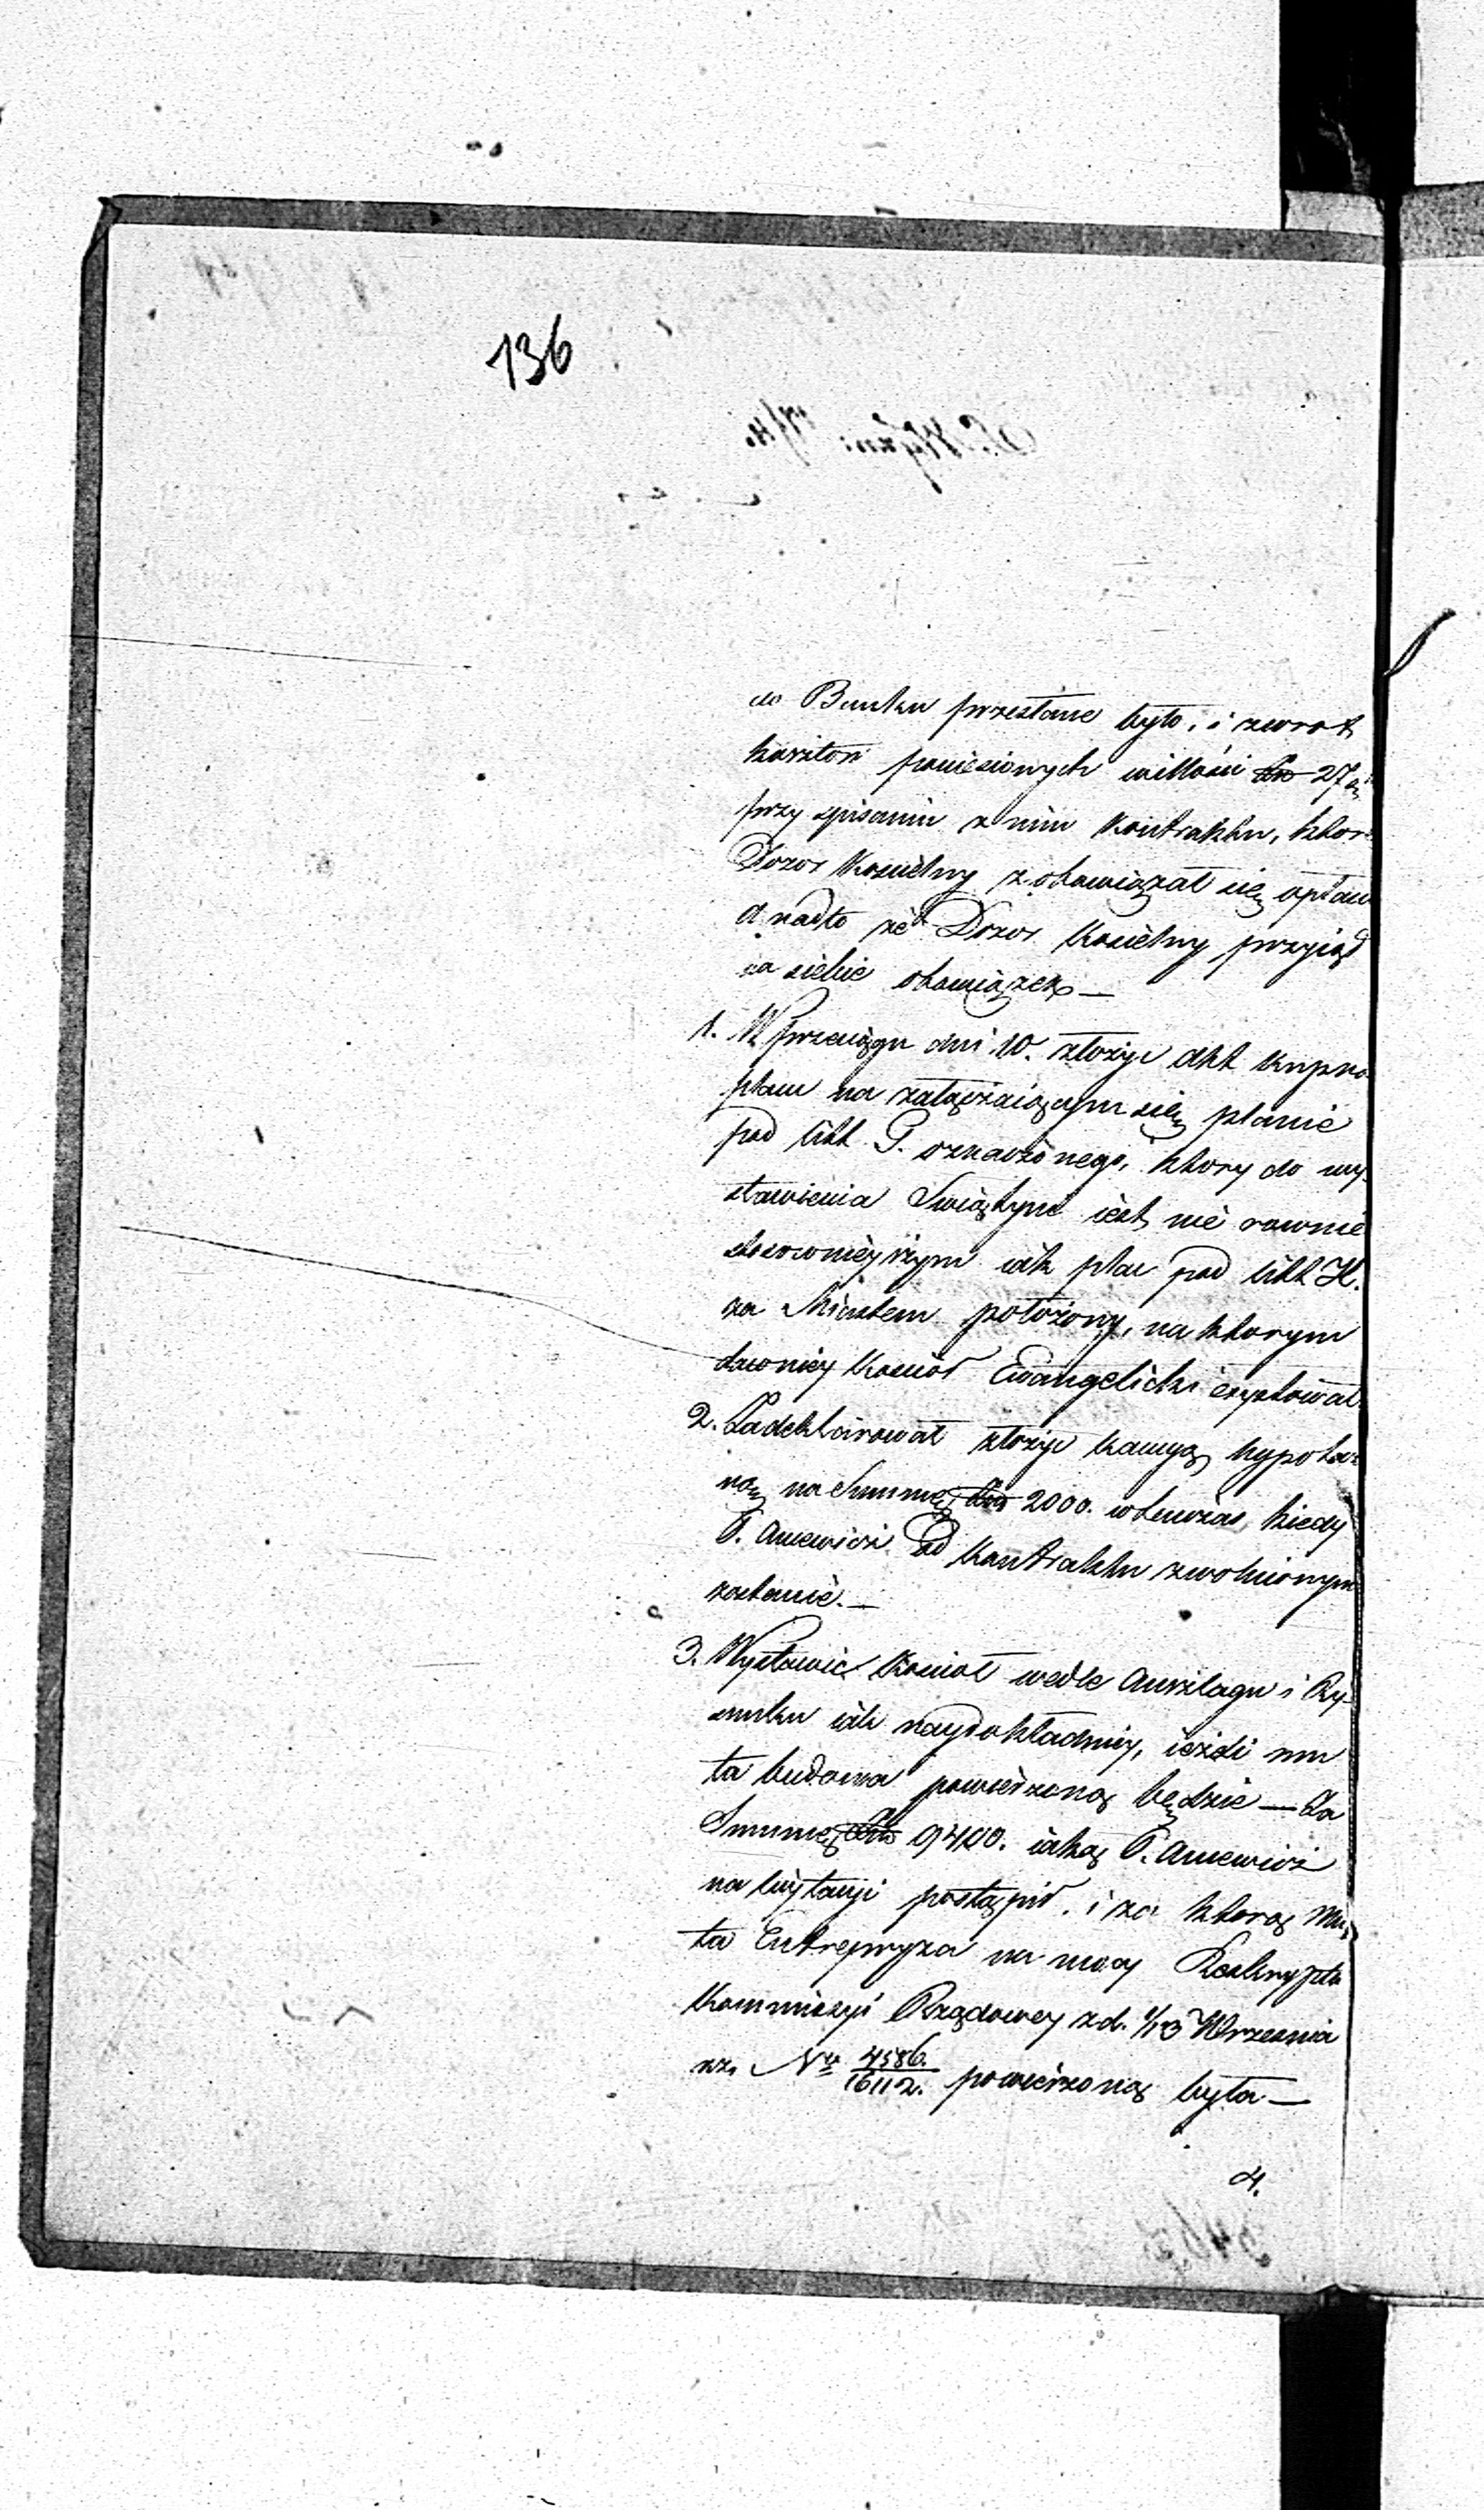 136
do Banku przesłane było, i zwrot
kosztów poniesionych w ilości 27
przy spisaniu z nim Kontraktu, któr
Dozor Kościelny zobowiązał się opłac
a nadto że Dozor Kościelny przyiął
na siebie obowiązek —
1. W przeciągu dni 10. złożyć akt kupna
placu na załączaiącym się planie
pod litt. G. oznaczonego, który do wy-
stawienia Swiątyni iest nie rownie
stosownieyszym iak plac pod litt H.
za Miastem położony, na ktorym
dawniey Kosciół Ewangelicki exystował.
2. Zadeklarował złożyć kaucyą hypote-
na Summę 2000. wtenczas kiedy
P. od Kontraktu zwolnionym
zostanie. —
3. Wystawić Kosciół wedle Anszlagu i Ry-
sunku iak naydokładniey, ieżeli mu
ta budowa powierzoną będzie — Za
Summę 9400. iaką P.
na licytacyi postąpił, i za ktorą mu
ta Entrepryza na mocy Reskryptu
Kommissyi Rządowey z d. 1/13 Wrzesnia
Nro 4586./16112. powierzoną była —
4.